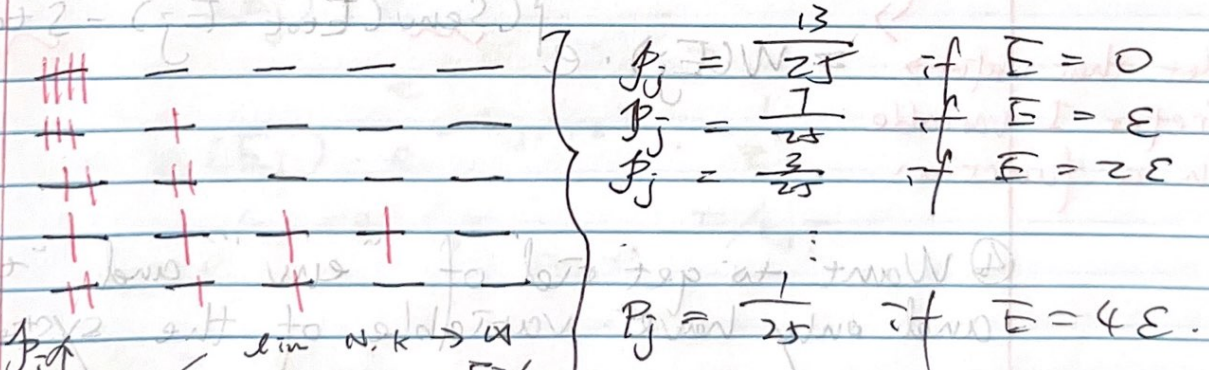 p_j = 13/25 if E = 0
p_j = 7/25 if E = ε
p_j = 3/25 if E = 2ε
⋮
p_j = 1/25 if E = 4ε.
lim N, k → ∞